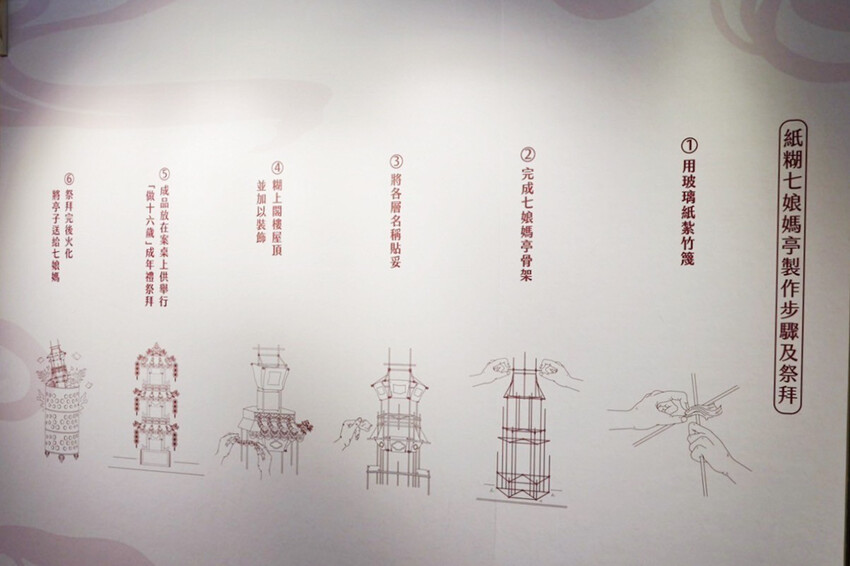 紙糊七娘媽亭製作步驟及祭拜
①用玻璃紙紮竹篾
②完成七娘媽亭骨架
③將各層名稱貼妥
④糊上閣樓屋頂
並加以裝飾
⑤成品放在案桌上供舉行
「做十六歲」成年禮祭拜
⑥祭拜完後火化
將亭子送給七娘媽